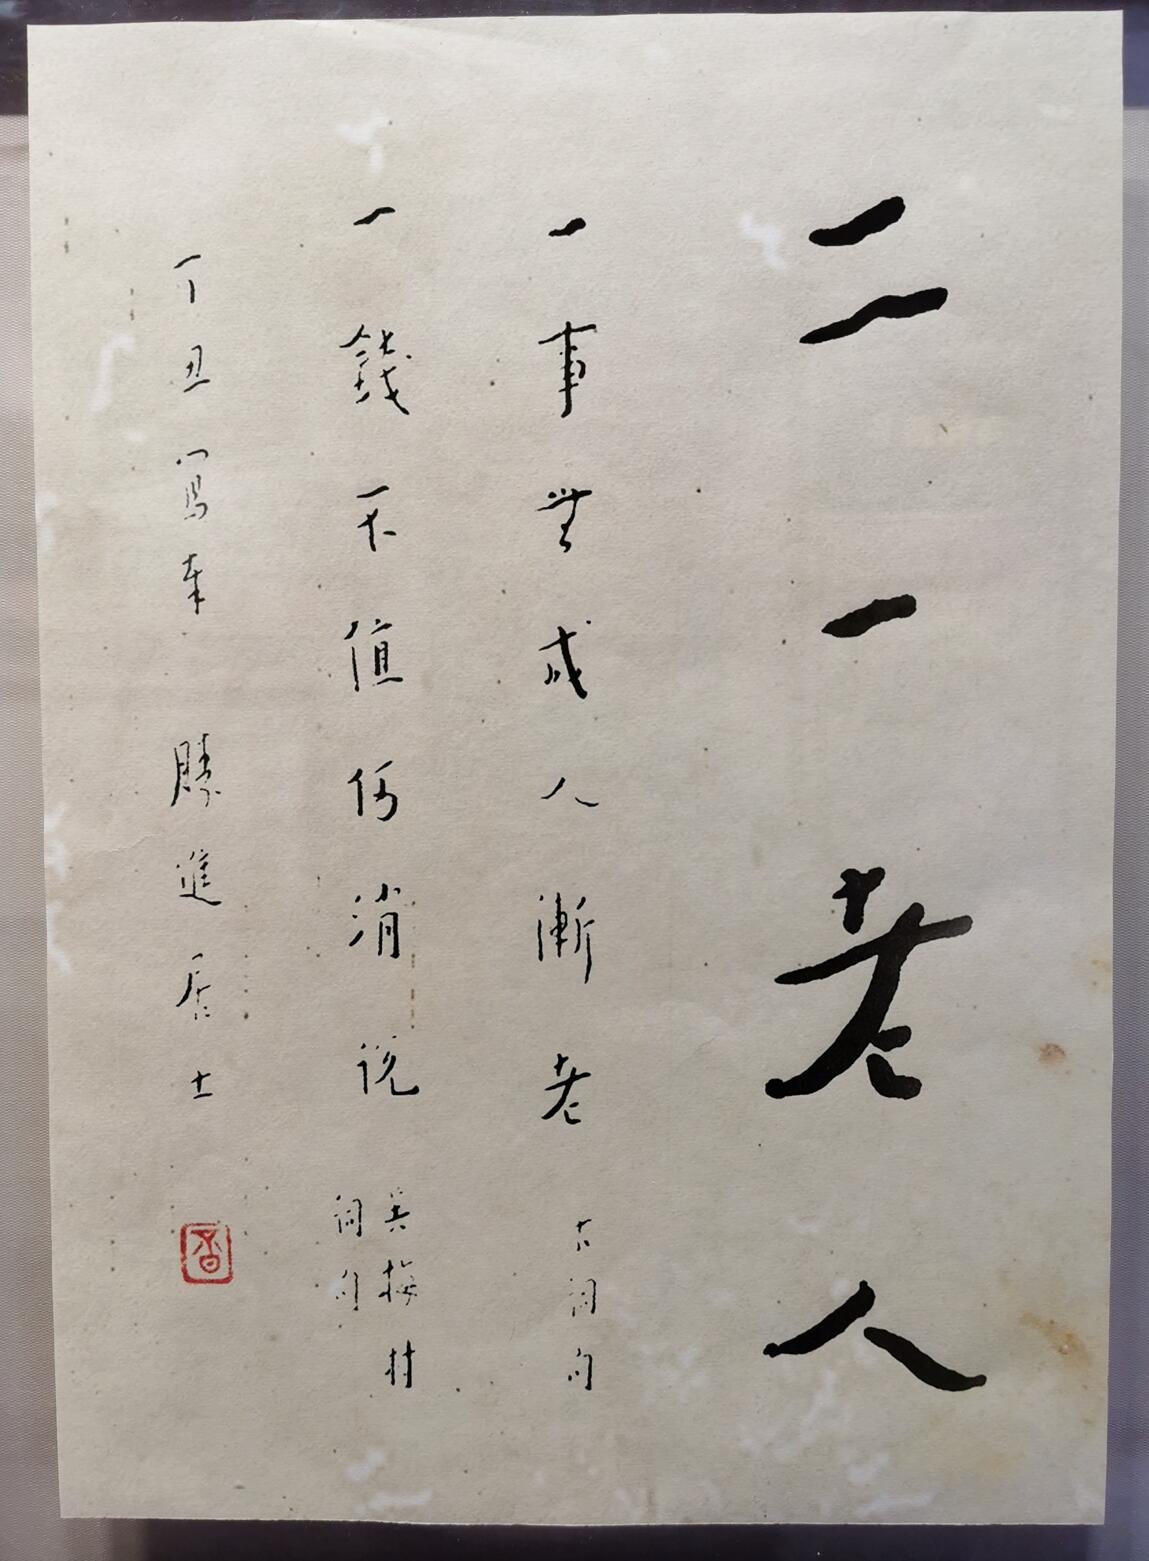 二一老人
一事無成人漸老
古詞句
一錢不值何消説
吳梅村
詞句
丁丑寫奉 勝進居士